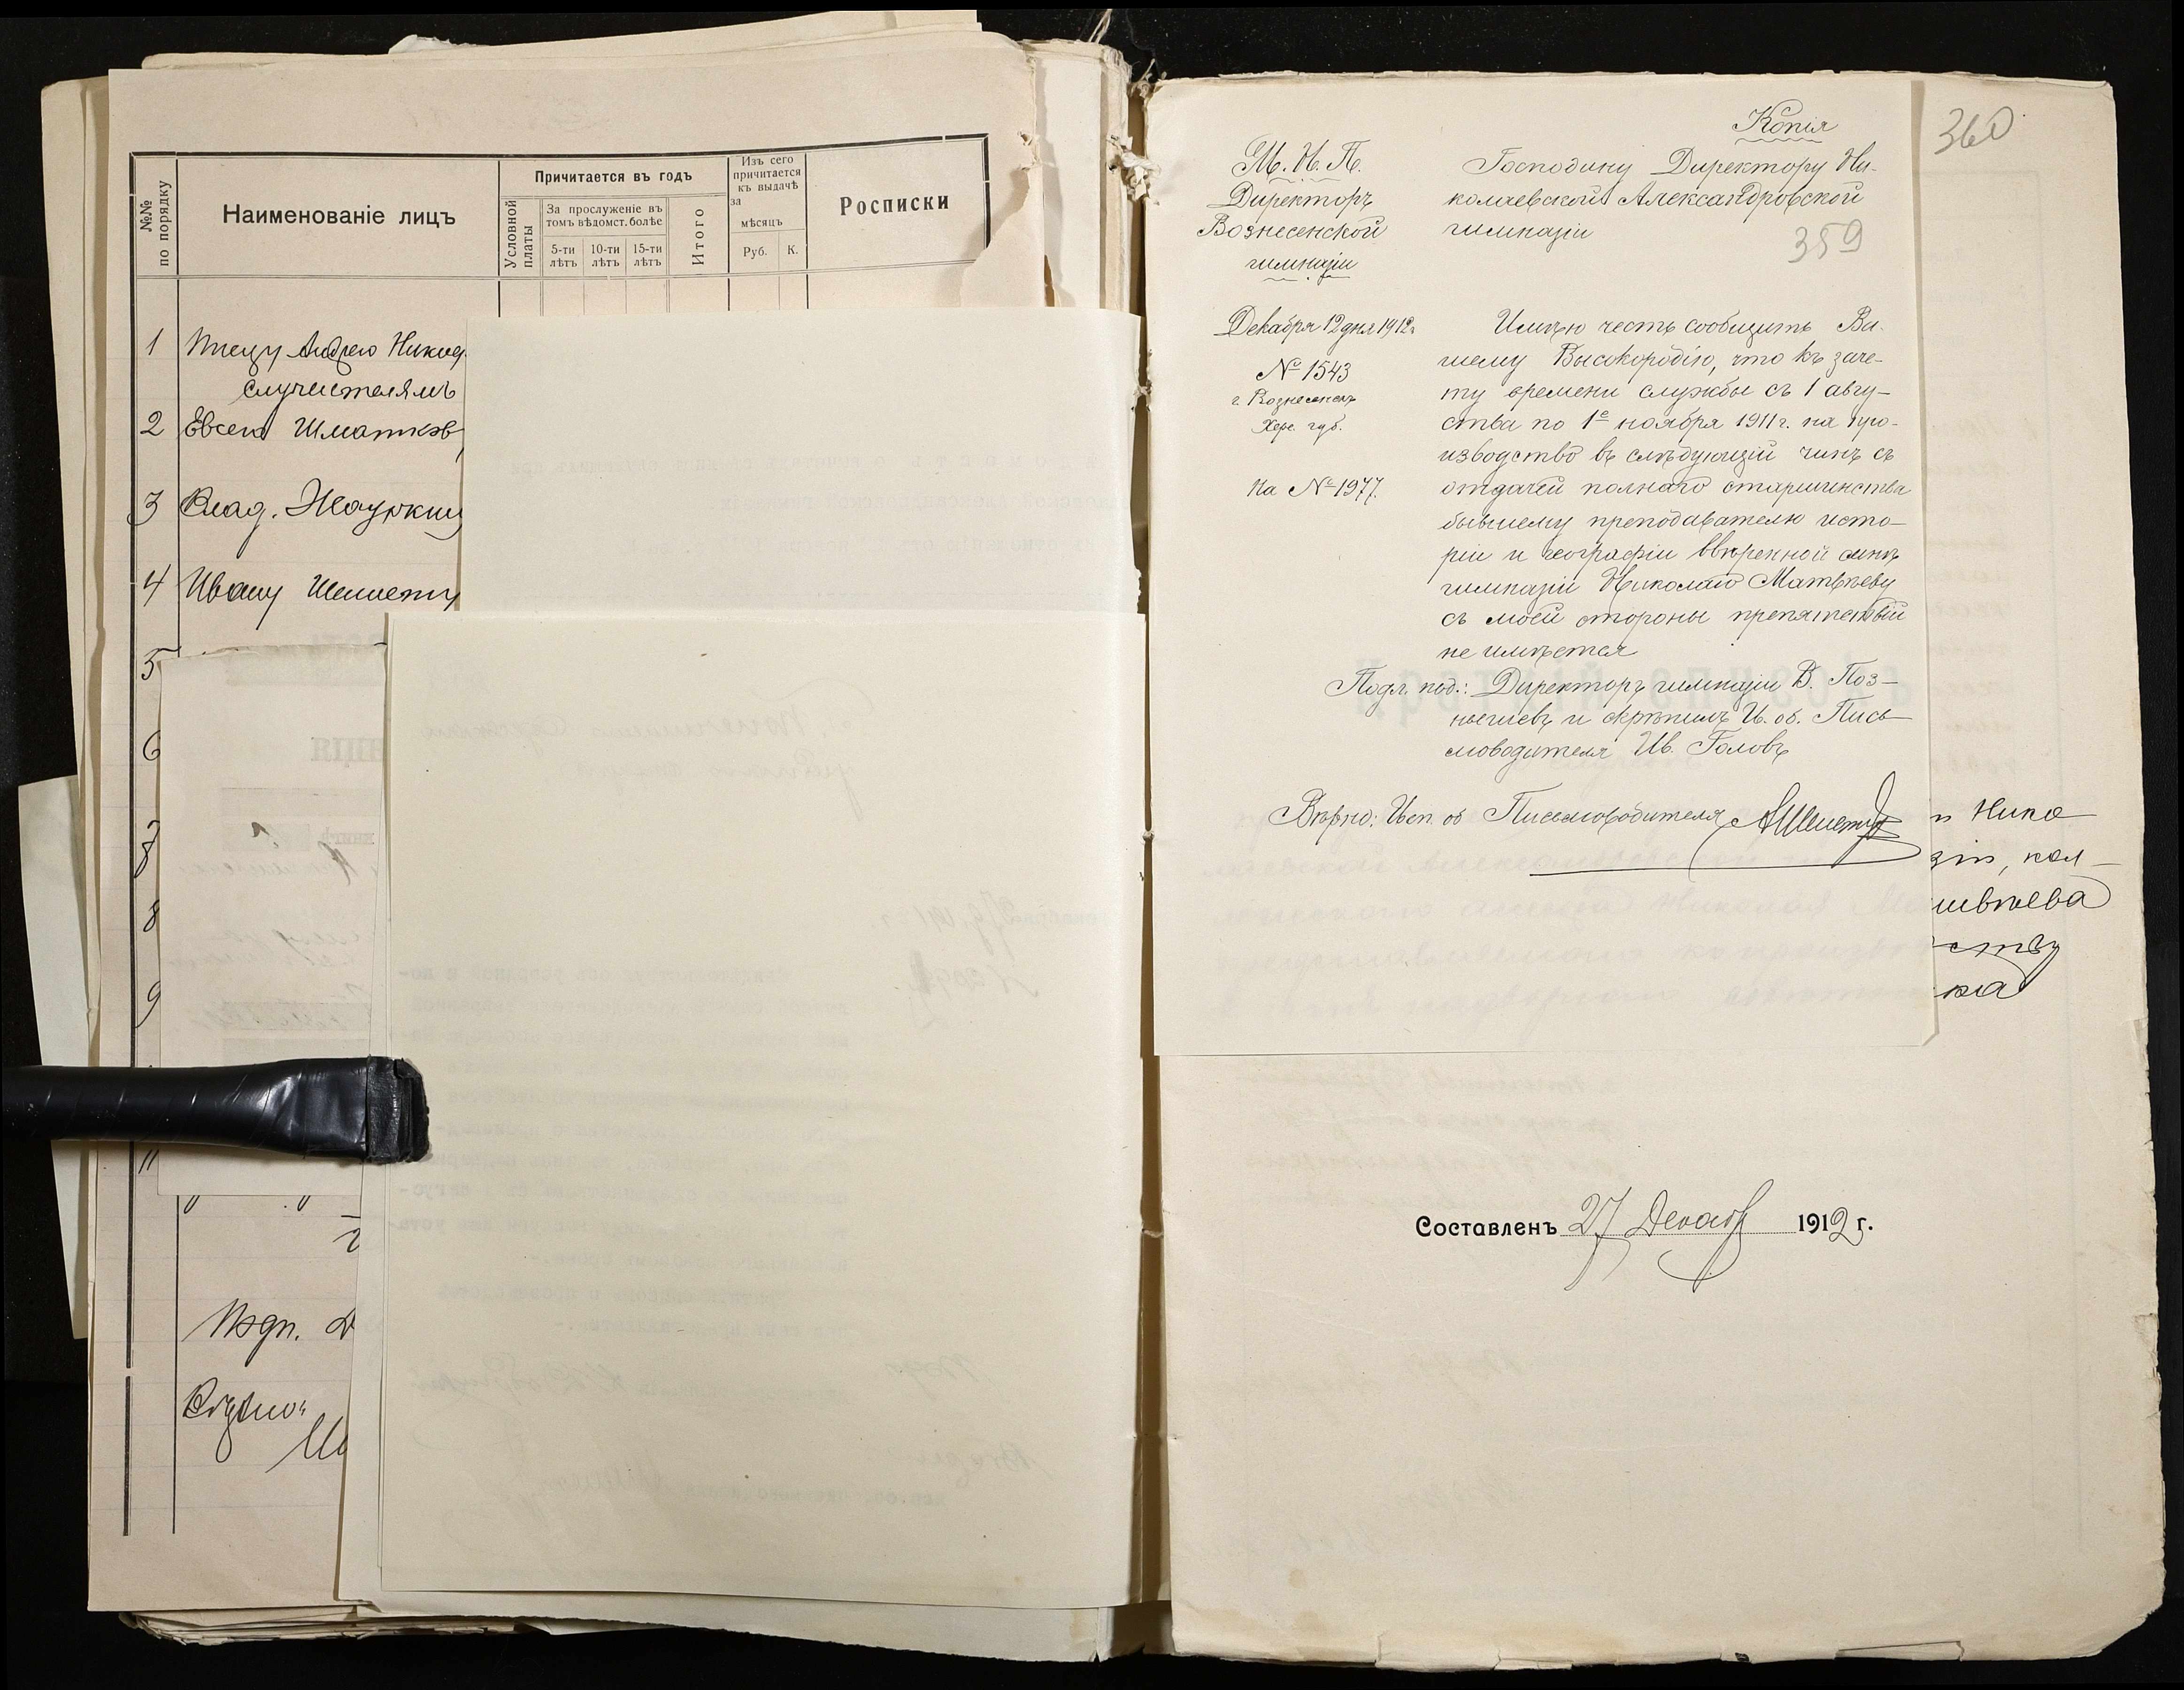 №№ по порядку
Наименованіе лицъ
Причитается въ годъ
Условной платы
За прослуженіе въ
томъ вѣдомст. болѣе
5-ти лѣтъ
10-ти лѣтъ
15-ти лѣтъ
Итого
Изъ сего
причитается
къ выдачѣ
за
мѣсяцъ
Руб. К.
Росписки
1 Андрею Никод
служителямъ
2 Евсею Шматков
3 Влад.
4 Ивану Шемету
5
6
7
8
9
11
Подп. Д
Вѣрно:
Копія
360
М. Н. П.
Директоръ
Вознесенской
гимназіи
Декабря 12 дня 1912 г
№ 1543
г. Вознесенскъ
Хер. губ.
На № 1977.
Господину Директору Ни-
колаевской Александровской
гимназіи
359
Имѣю честь сообщить Ва-
шему Высокородію, что къ заче-
ту времени службы съ 1 авгу-
ста по 1е ноября 1911 г. на про-
изводство въ слѣдующій чинъ съ
отдачей полнаго старшинства
бывшему преподавателю исто-
ріи и географіи ввѣренной мнѣ
гимназіи Николаю Матвѣеву
съ моей стороны препятствій
не имѣется
Подл. под.: Директоръ гимназіи В. Поз-
нышевъ и скрѣпилъ И. об. Пись-
моводителя Ив. Головъ
Вѣрно: Исп. об Письмоводителя АШемет
Нико
зіи, кол-
твѣева
ству
ка
Составленъ 27 Декабр 1912 г.